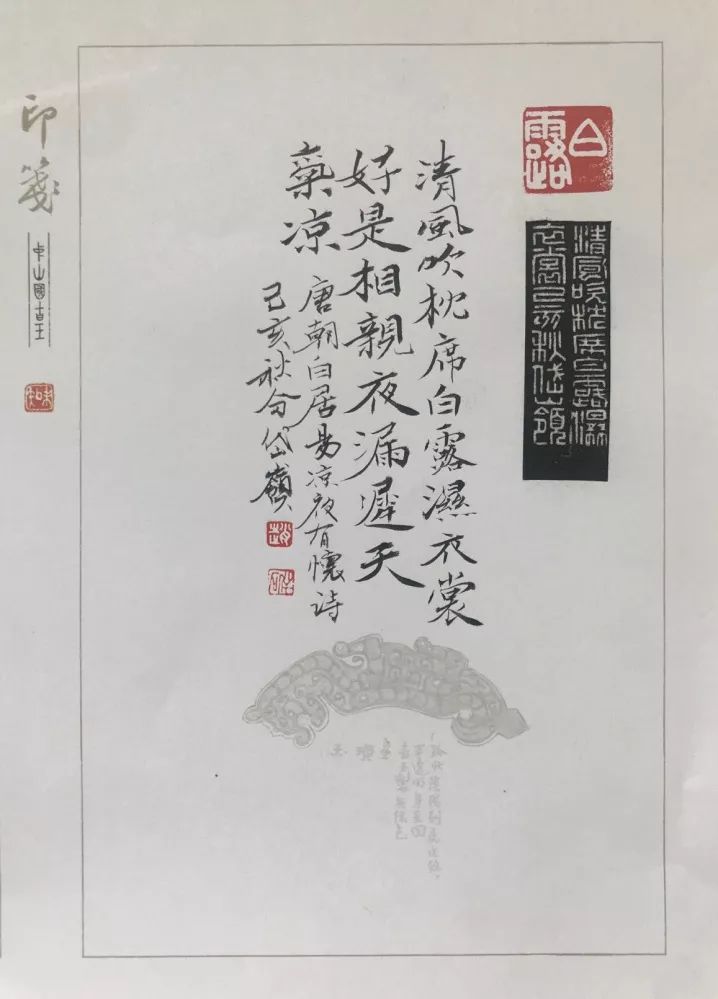 白露
清風吹枕席白露濕
衣裳己亥秋岱嶺
清風吹枕席白露濕衣裳
好是相親夜漏遲天
氣凉
唐朝白居易凉夜有懷詩
己亥秋分岱嶺
趙
印箋
中山國古玉